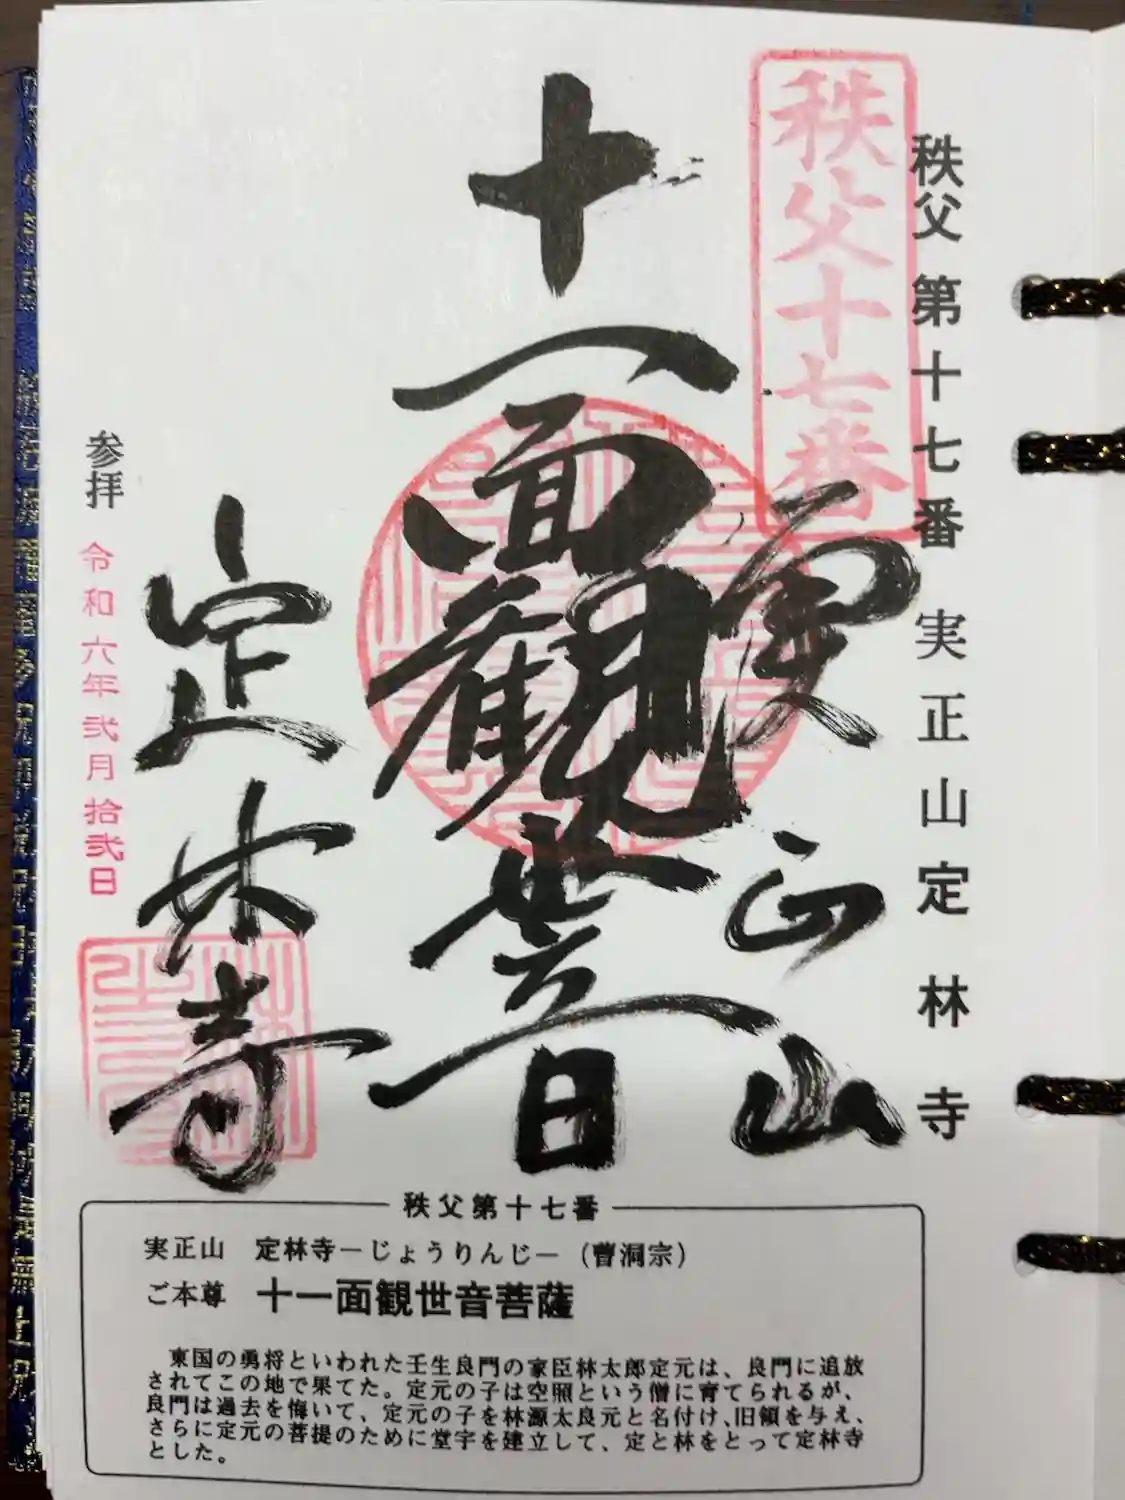 秩父第十七番 実正山定林寺
秩父十七番
実正山
十一面観世音
定林寺
参拝 令和六年弐月拾弐日
秩父第十七番
実正山 定林寺―じょうりんじ―(曹洞宗)
ご本尊 十一面観世音菩薩
東国の勇将といわれた壬生良門の家臣林太郎定元は、良門に追放
されてこの地で果てた。定元の子は空照という僧に育てられるが、
良門は過去を悔いて、定元の子を林源太良元と名付け、旧領を与え、
さらに定元の菩提のために堂宇を建立して、定と林をとって定林寺
とした。